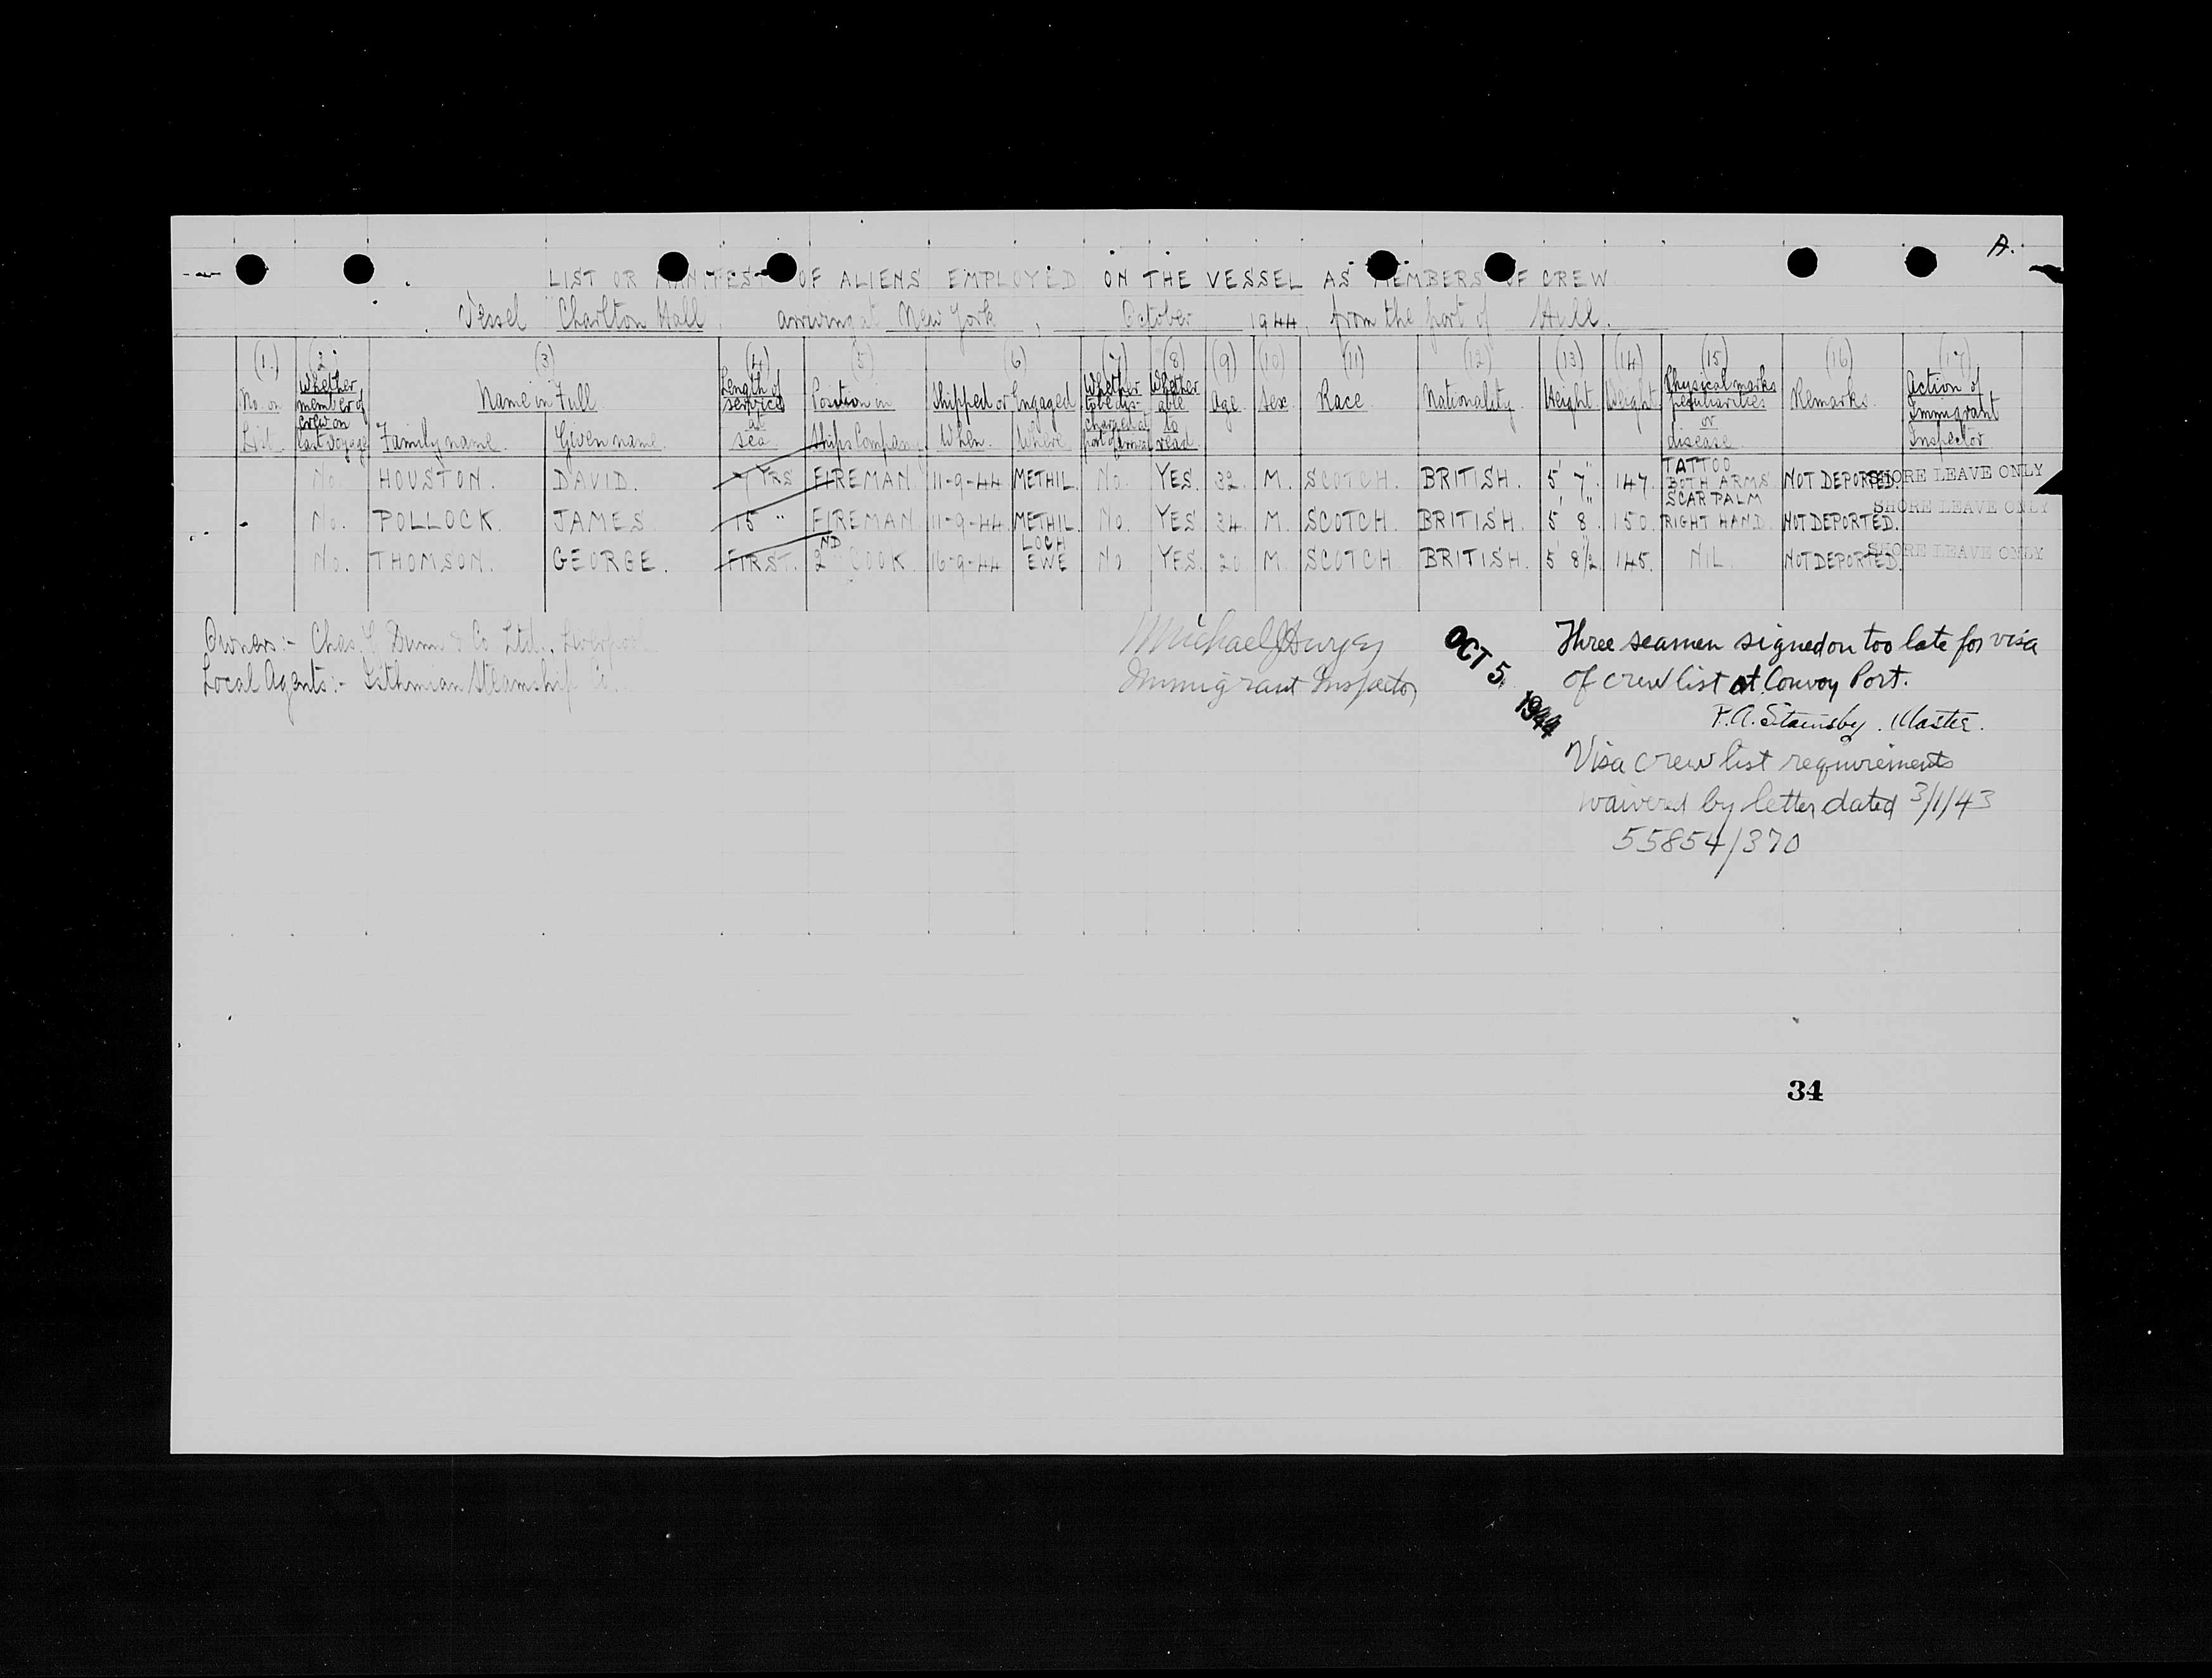 A.
LIST OR MANIFEST OF ALIENS EMPLOYED ON THE VESSEL AS MEMBERS OF CREW
Vessel Charlton Hall, arriving at New York, October 1944, from the port of Hull.
(1.) (2) (3) (4) (5) (6) (7) (8) (9) (10) (11) (12) (13) (14) (15) (16) (17)
No. on List. Whether member of crew on last voyage Name in Full Family name. Given name. Length of service at sea. Position in Ships Company. Shipped or Engaged When. Where. Whether to be discharged at port of arrival Whether able to read. Age. Sex. Race. Nationality. Height. Weight. Physical marks peculiarities or disease. Remarks. Action of Immigrant Inspector
No. HOUSTON. DAVID. 7 YRS FIREMAN. 11-9-44 METHIL. No. YES. 32. M. SCOTCH. BRITISH. 5' 7". 147. TATTOO BOTH ARMS NOT DEPORTED. SHORE LEAVE ONLY
No. POLLOCK. JAMES. 15 " FIREMAN 11-9-44 METHIL. No. YES 34. M. SCOTCH. BRITISH. 5' 8". 150. SCAR PALM RIGHT HAND. NOT DEPORTED. SHORE LEAVE ONLY
No. THOMSON. GEORGE. FIRST. 2ND COOK. 16-9-44 LOCH EWE No YES. 20. M. SCOTCH. BRITISH. 5' 8½" 145. NIL. NOT DEPORTED. SHORE LEAVE ONLY
Owners:- Chas. Dunn & Co Ltd., Liverpool
Local Agents:- Isthmian Steamship Co.
Michael J
Immigrant Inspector
OCT 5. 1944
Three seamen signed on too late for visa
of crew list at Convoy Port.
P.A. Stainsby. Master.
Visa crew list requirements
waivered by letter dated 3/1/43
55854/370
34